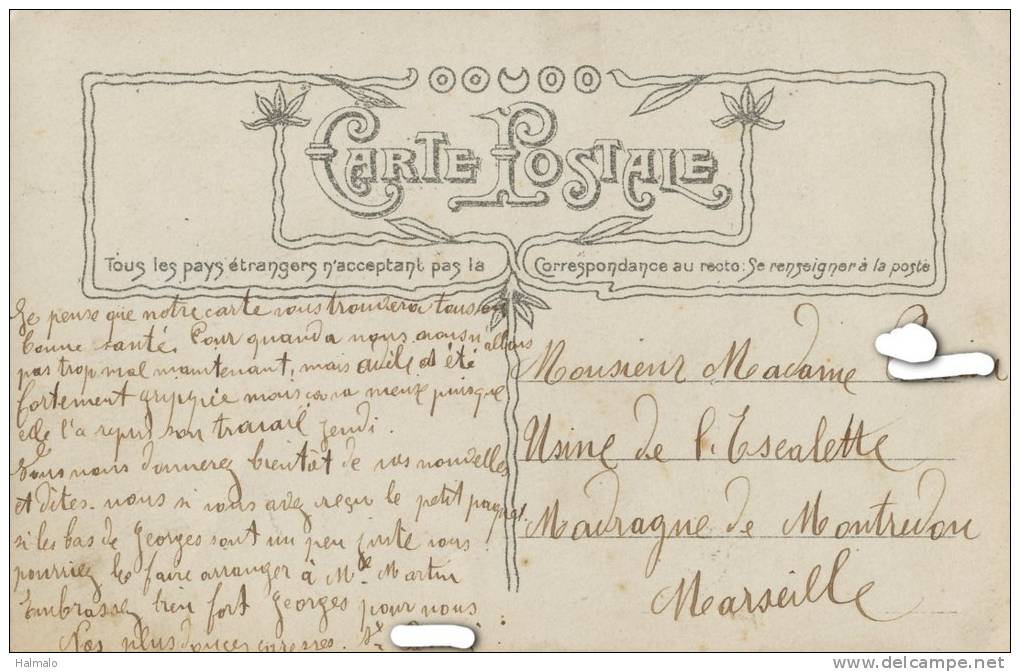 CARTE POSTALE
Tous les pays étrangers n'acceptant pas la Correspondance au recto: Se renseigner à la poste
Je pense que notre carte vous trouvera tous en
bonne santé. Pour quand a nous nous n allons
pas trop mal maintenant, mais a été
fortement grippée mais ça va mieux puisque
elle l'a repris son travail jeudi.
Vous nous donnerez bientôt de vos nouvelles
et dites-nous si vous avez reçu le petit paquet
si les bas de Georges sont un peu juste vous
pourriez les faire arranger à Me Martin
Embrassez bien fort Georges pour nous
Nos plus douces caresses.
Monsieur Madame
Usine de l'Escalette
Madrague de Montredon
Marseille
Halmalo
http://www.delcampe.net